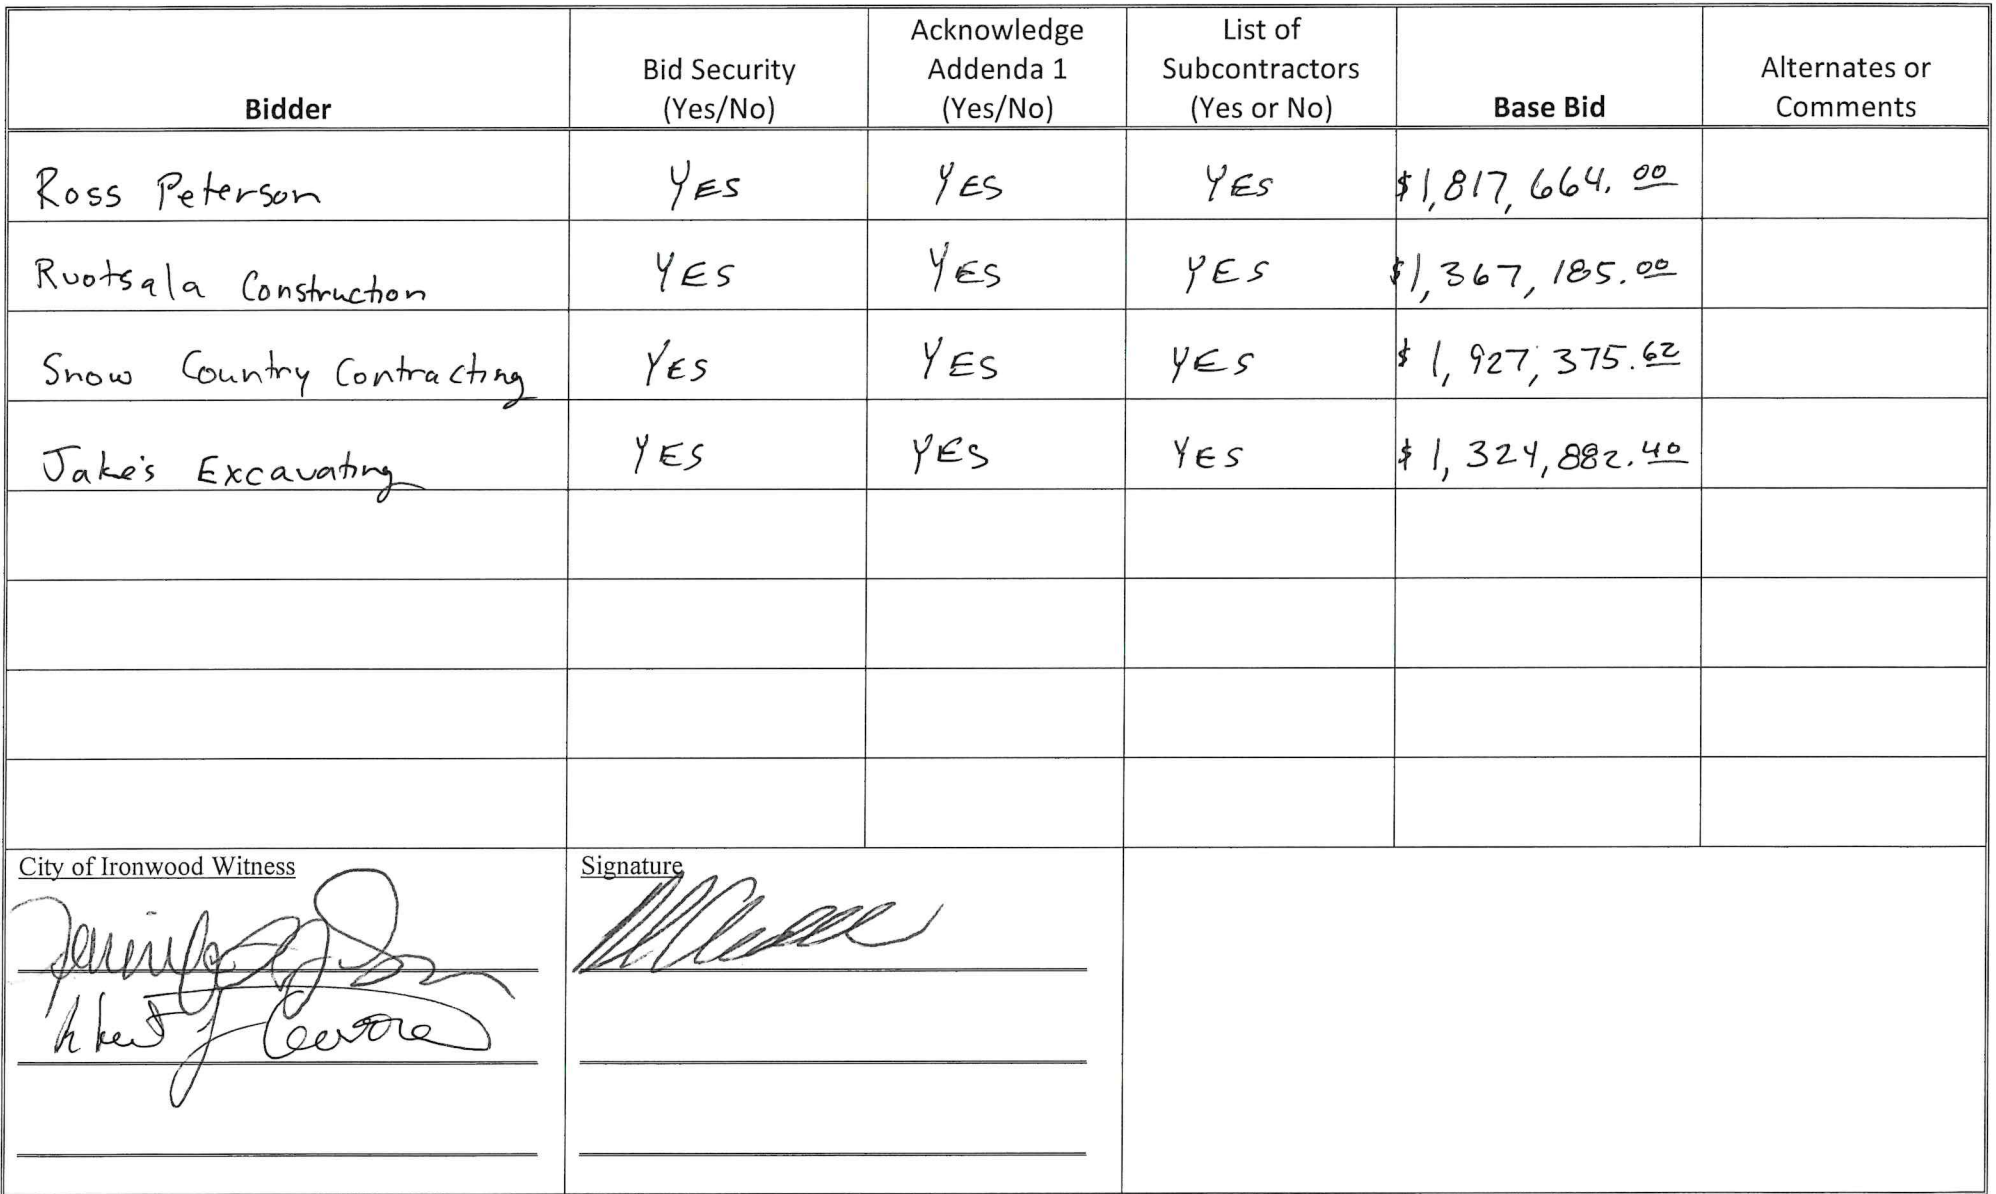 Bidder
Bid Security
(Yes/No)
Acknowledge
Addenda 1
(Yes/No)
List of
Subcontractors
(Yes or No)
Base Bid
Alternates or
Comments
Ross Peterson YES YES YES $1,817,664.00
Ruotsala Construction YES YES YES $1,367,185.00
Snow Country Contracting YES YES YES $1,927,375.62
Jake's Excavating YES YES YES $1,324,882.40
City of Ironwood Witness Signature